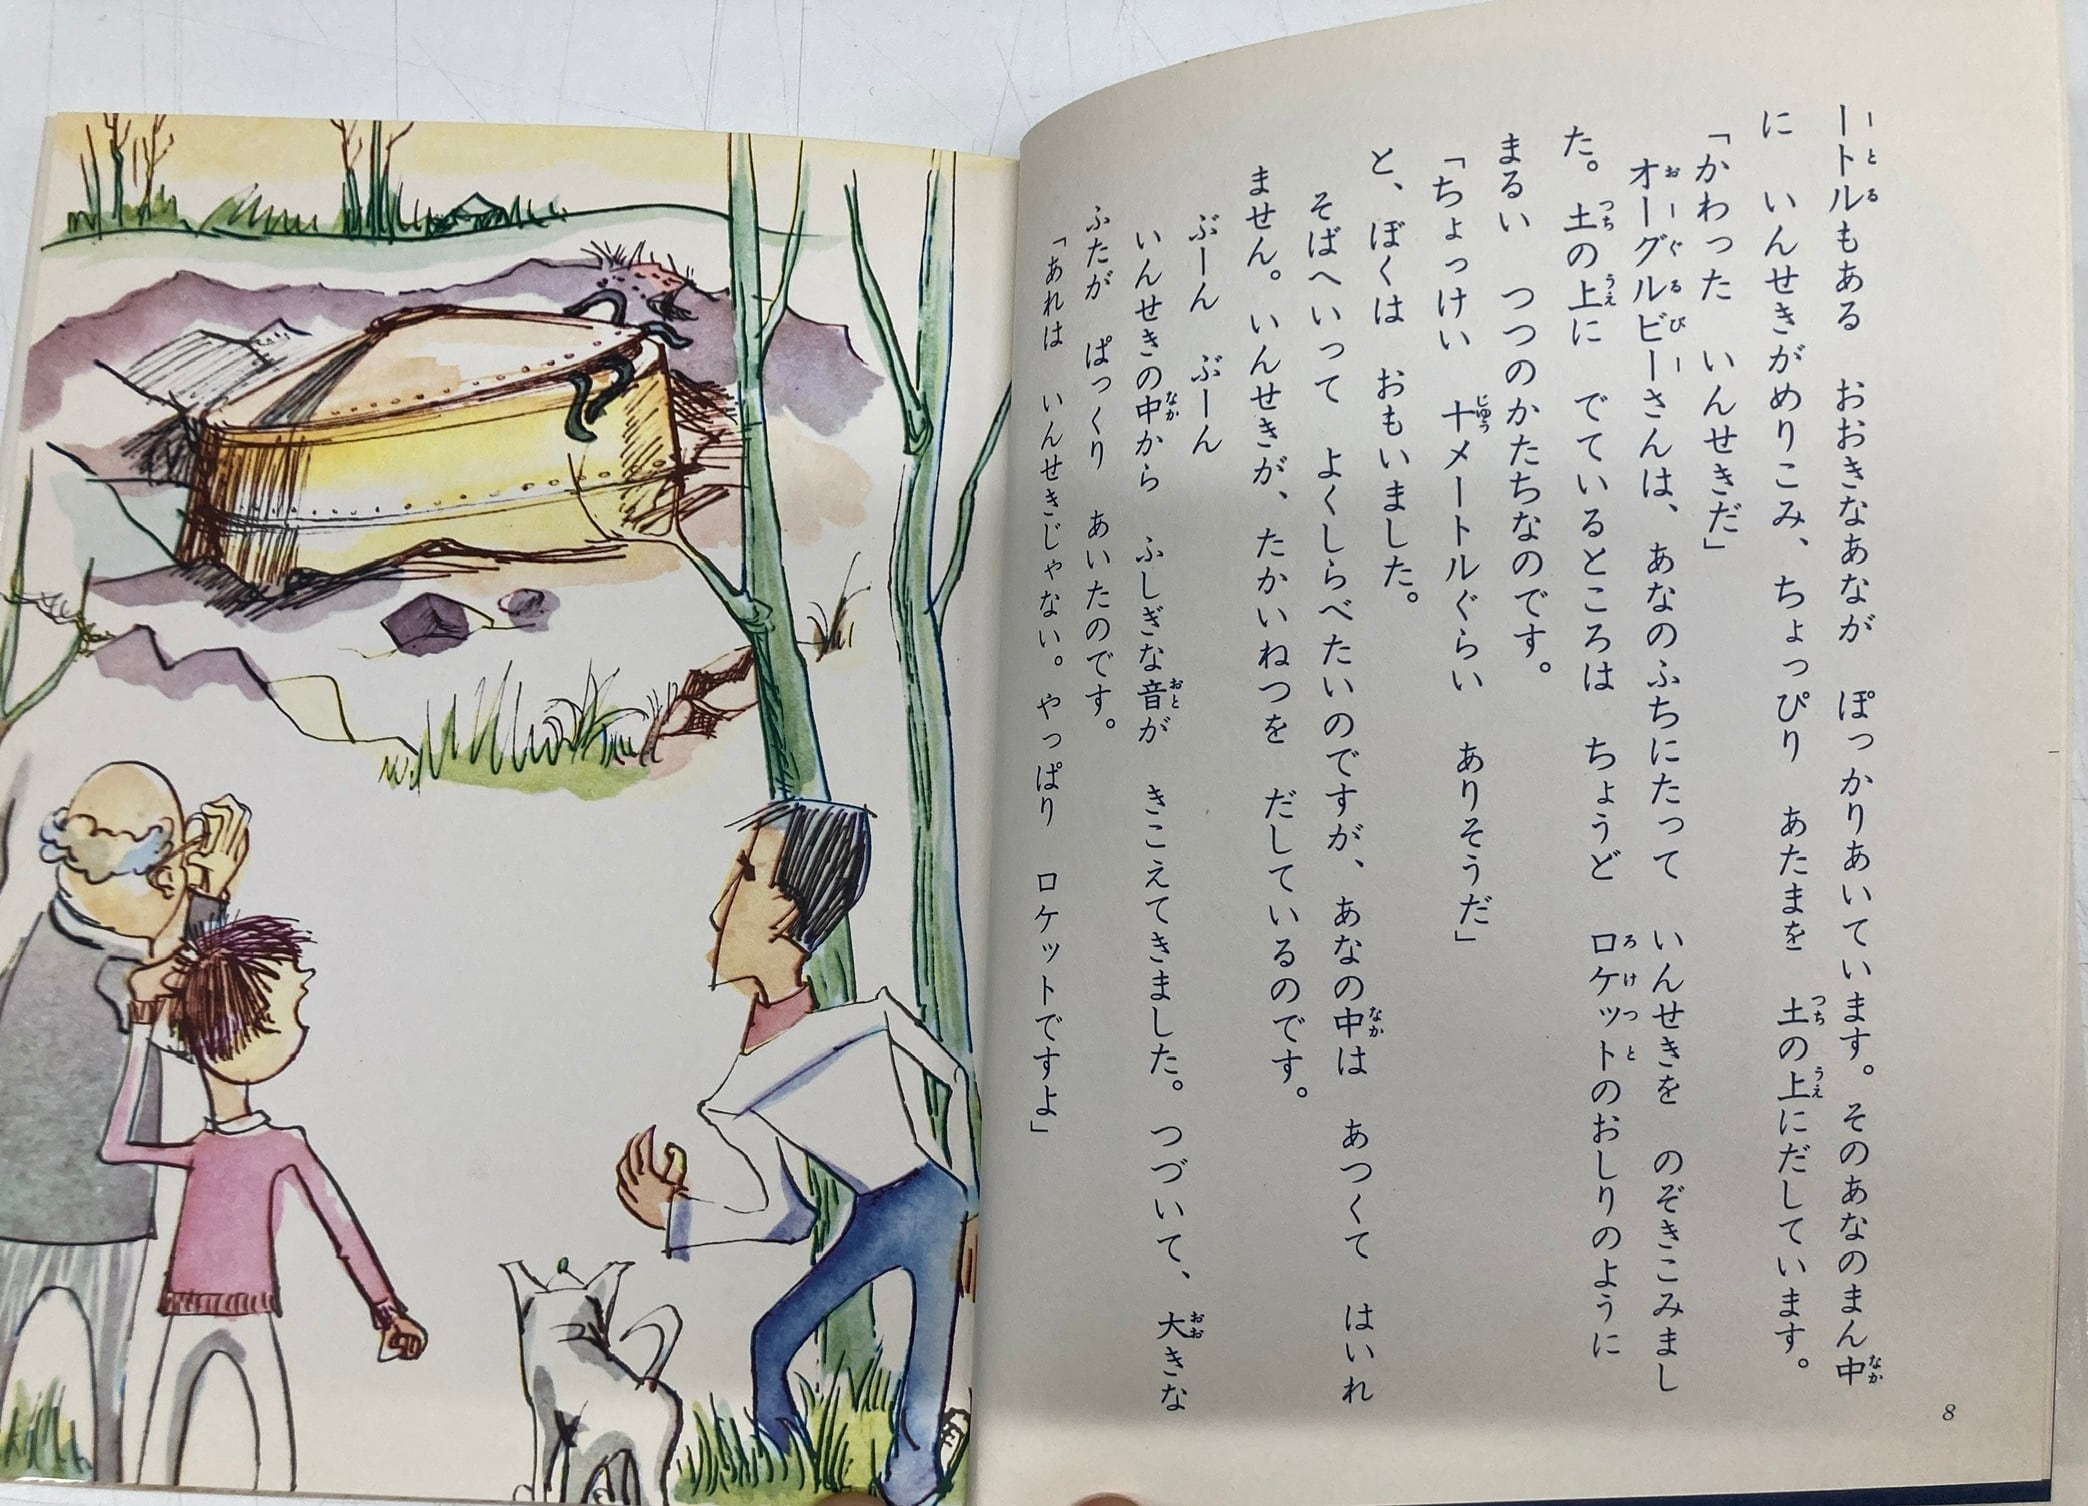 ートルもある　おおきなあなが　ぽっかりあいています。そのあなのまん中
に　いんせきがめりこみ、ちょっぴり　あたまを　土の上にだしています。
「かわった　いんせきだ」
オーグルビーさんは、あなのふちにたって　いんせきを　のぞきこみまし
た。土の上に　でているところは　ちょうど　ロケットのおしりのように
まるい　つつのかたちなのです。
「ちょっけい　十メートルぐらい　ありそうだ」
と、ぼくは　おもいました。
そばへいって　よくしらべたいのですが、あなの中は　あつくて　はいれ
ません。いんせきが、たかいねつを　だしているのです。
ぶーん　ぶーん
いんせきの中から　ふしぎな音が　きこえてきました。つづいて、大きな
ふたが　ぱっくり　あいたのです。
「あれは　いんせきじゃない。やっぱり　ロケットですよ」
8